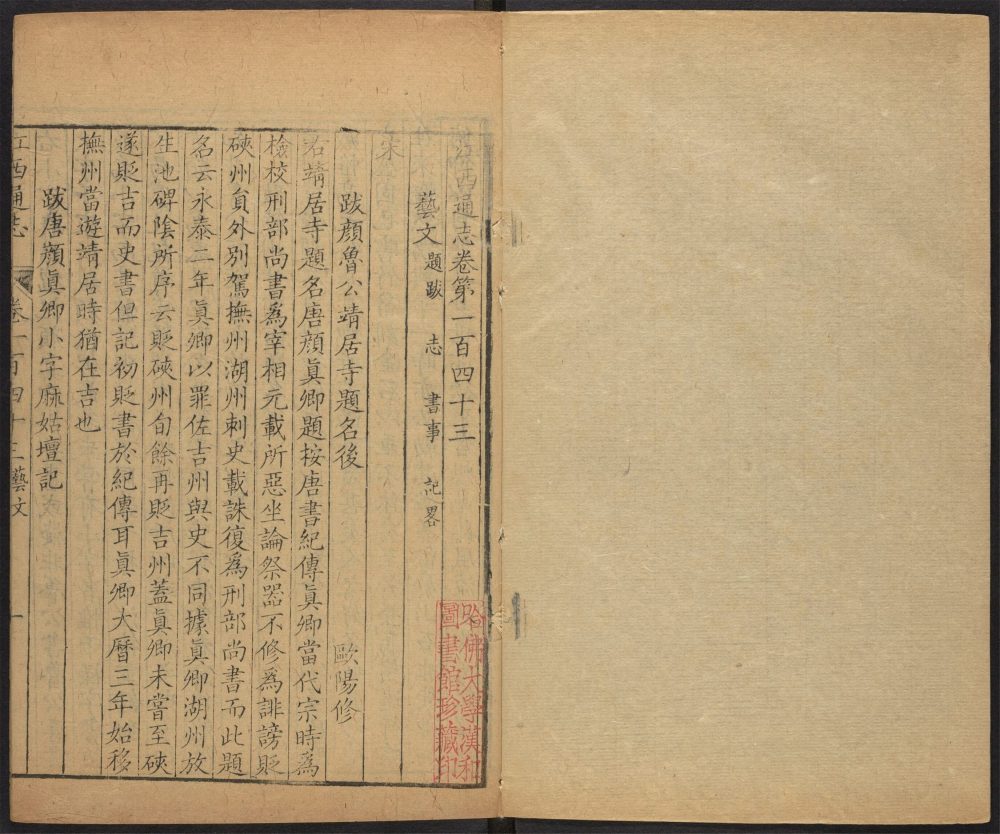 江西通志卷第一百四十三
藝文 題跋 志 書事 記畧
宋
跋顏魯公靖居寺題名後 歐陽修
右靖居寺題名唐顏眞卿題按唐書紀傳眞卿當代宗時爲
檢校刑部尚書爲宰相元載所惡坐論祭器不修爲誹謗貶
硤州員外別駕撫州湖州刺史載誅復爲刑部尚書而此題
名云永泰二年眞卿以罪佐吉州與史不同據眞卿湖州放
生池碑陰所序云貶硤州旬餘再貶吉州蓋眞卿未嘗至硤
遂貶吉而史書但記初貶書於紀傳耳眞卿大曆三年始移
撫州當遊靖居時猶在吉也
跋唐顏眞卿小字麻姑壇記
江西通志 卷一百四十三 藝文 一
哈佛大學漢和
圖書館珍藏印